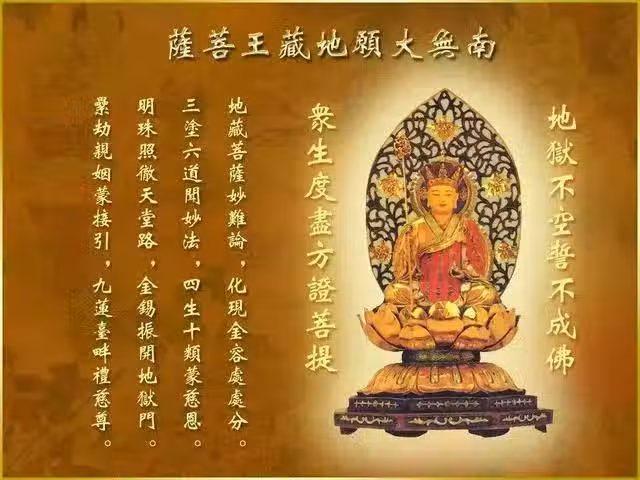 南無大願地藏王菩薩
地獄不空誓不成佛
眾生度盡方證菩提
地藏菩薩妙難論，化現金容處處分。
三塗六道聞妙法，四生十類蒙慈恩。
明珠照徹天堂路，金錫振開地獄門。
纍劫親姻蒙接引，九蓮臺畔禮慈尊。